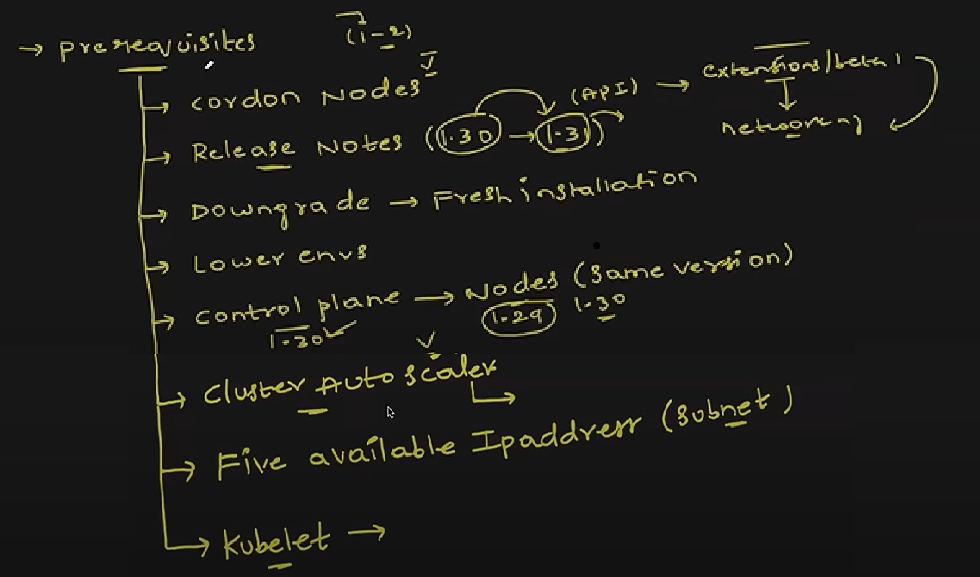 → prerequisites (1-2)
→ cordon Nodes
→ Release Notes (1.30 → 1.31) (API) → extensions/beta1
networking
→ Downgrade → Fresh installation
→ Lower envs
→ control plane → Nodes (same version)
1.30 1.29 1.30
→ Cluster Auto scaler
→ Five available Ipaddress (subnet)
→ Kubelet →